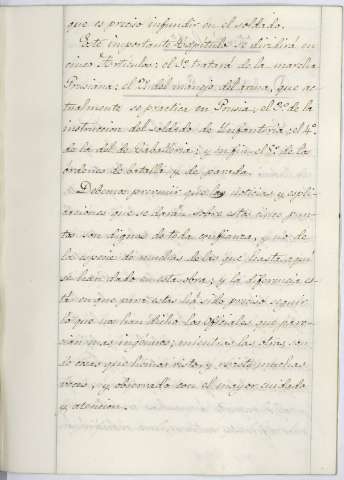 que es preciso infundir en el soldado.
Este importante Capítulo se dividirá en
cinco Artículos: el 1º tratará de la marcha
Prusiana; el 2º del manejo del arma, que ac-
tualmente se practica en Prusia; el 3º de la
instruccion del Soldado de Infantería; el 4º
de la del de Caballería; y en fin el 5º de las
órdenes de batalla y de parada.
Debemos prevenir que las noticias y expli-
caciones que se darán sobre estos cinco pun-
tos son dignas de toda confianza, y no de
la especie de muchas de las que hasta aquí
se han dado en esta obra; y la diferencia es-
tá en que para estas ha sido preciso seguir
lo que nos han dicho los Oficiales que pare-
cían mas ingenuos; mientras las otras son
de cosas que hemos visto, y muchas
veces, y observado con el mayor cuidado
y atencion.